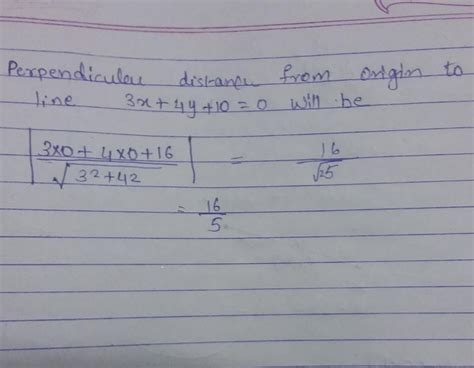 Perpendicular distance from origin to
line 3x+4y+10=0 will be
|3×0+4×0+16 / √3²+42| = 16/√25
= 16/5